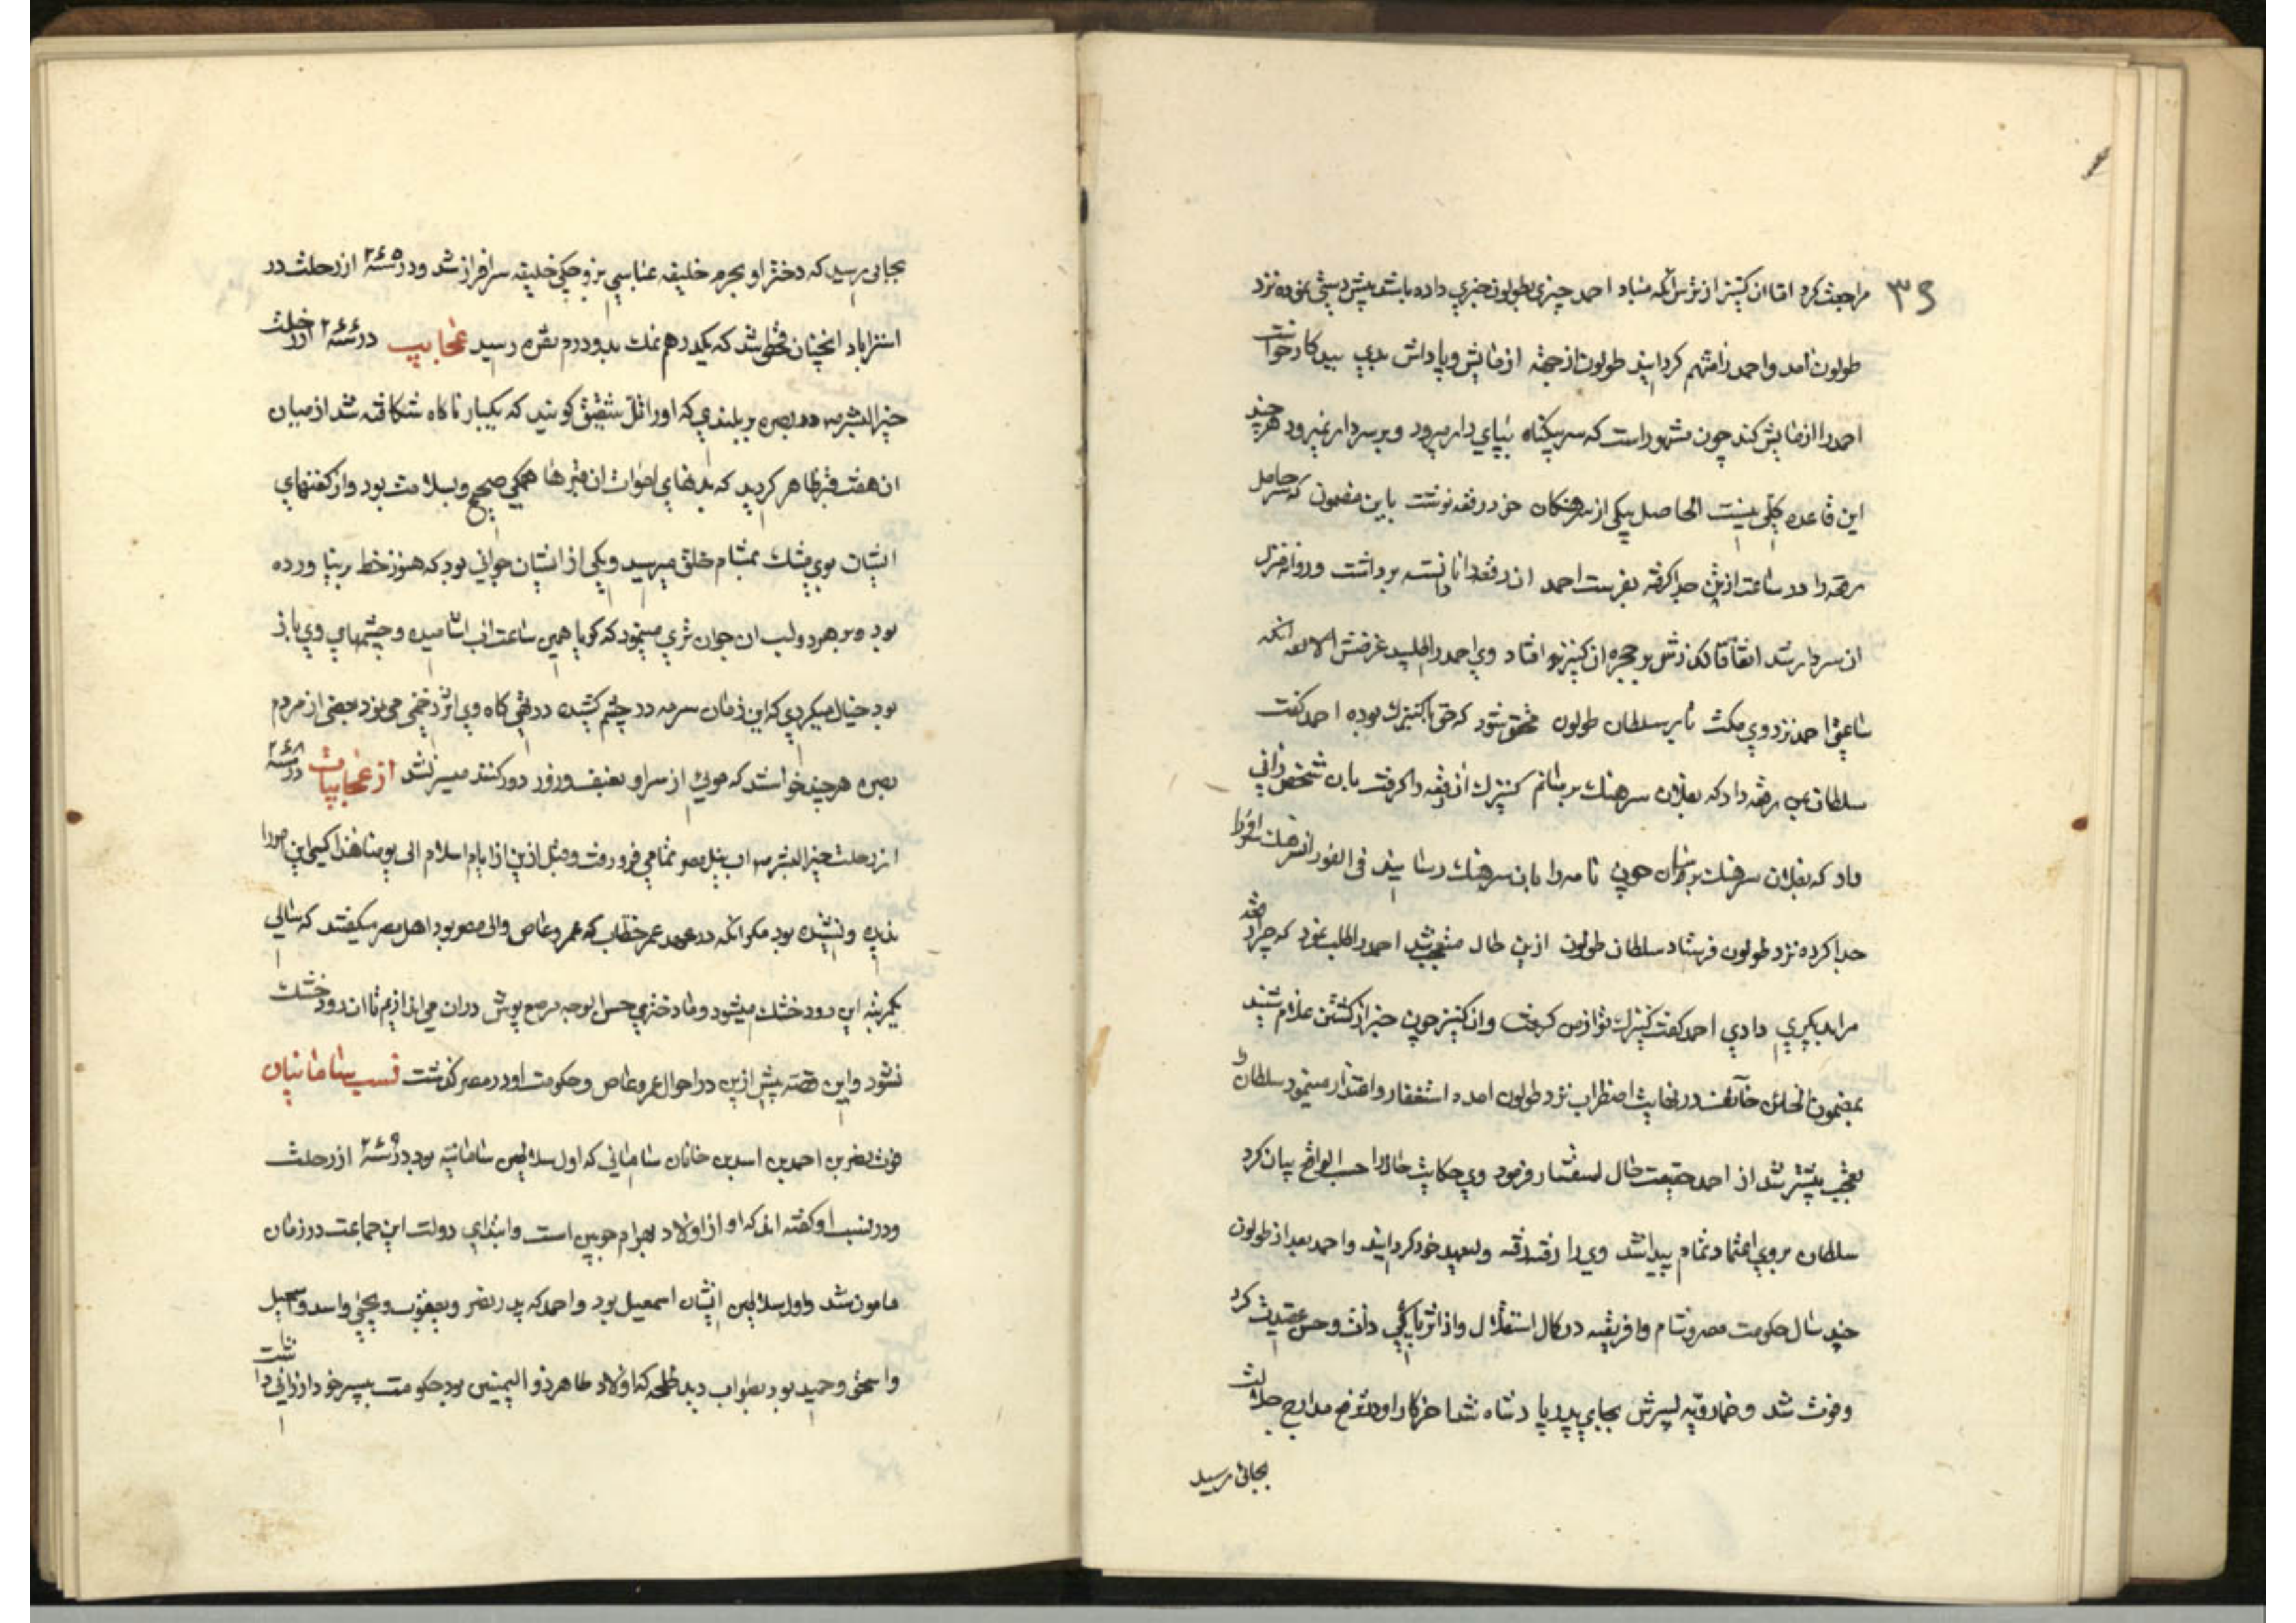 ۳۶
مراجعت کرد اما ان کنیز از ترس آنکه مباد احمد چیزی بطولون خبری داده باشد پیش دستی نموده نزد
طولون آمد و احمد را متهم کردانید طولون از جهة ازمایش و پاداش بدی بیدکار خواست
احمد را ازمایش کند چون مشهور است که سر بیکناه بپای دار میرود و بر سر دار نمیرود هر چند
این قاعده کلی نیست الحاصل بیکی از سرهنکان خود رقعه نوشت باین مضمون که سر حامل
رقعه را در ساعت از تن جدا کرفته بفرست احمد ان رقعه را نادانسته برداشت و روانه منزل
ان سردار شد اتفاقا کذرش بر حجره ان کنیز افتاد وی احمد را طلبید غرضش آنکه
ساعتی احمد نزد وی مکث تا بر سلطان طولون محقق شود که حق با کنیزک بوده احمد کفت
سلطان بمن رقعه داد که بفلان سرهنک برسانم کنیزک ان رقعه را کرفت بان شخص زانی
داد که بفلان سرهنک برسان چون نامه را بان سرهنک رسانید فی الفور ان سرهنک سر او را
جدا کرده نزد طولون فرستاد سلطان طولون ازین حال متعجب شد احمد را طلب نمود که چرا رقعه
مرا بدیکری دادی احمد کفت کنیزک تو از من کرفت و ان کنیز چون خبر از کشتن غلام شنید
بمضمون الخائن خائف در نهایت اضطراب نزد طولون امده استغفار و اعتذار مینمود سلطان را
تعجب بیشتر شد از احمد حقیقت حال استفسار فرمود وی حکایت حال را حسب الواقع بیان کرد
سلطان بر وی اعتماد تمام پیدا شد وی را رفته رفته ولیعهد خود کردانید و احمد بعد از طولون
چند سال حکومت مصر و شام و افریقیه در کمال استقلال و از اثر پاکی ذات و حسن عقیدت کرد
و فوت شد و خمارویه پسرش بجای پدر پادشاه شد اخر کار او در ترفع مدارج جلالت
بجائی رسید
بجائی رسید که دختر او بحرم خلیفه عباسی بزوجکی خلیفه سرافراز شد و در سنه ۲۶۵ از رحلت در
استراباد انچنان قحطی شد که یکدرهم نمک بدو درم نقره رسید عجایب در سنه ۲۶۶ از رحلت
خیر البشر در بصره بر بلندی که او را تل شقیق کویند که یکبار ناکاه شکافته شد از میان
ان هفت قبر ظاهر کردید که بدنهای اموات ان قبرها همکی صحیح و بسلامت بود و از کفنهای
ایشان بوی مشک بمشام خلق میرسید و یکی از ایشان جوانی بود که هنوز خط بر نیاورده
بود و بر هر دو لب ان جوان تری مینمود که کویا همین ساعت اب اشامیده و چشمهای وی باز
بود خیال میکردی که این زمان سرمه در چشم کشیده در تهی کاه وی اثر زخمی می بود بعضی از مردم
بصره هر چند خواستند که موئی از سر او بعنف و زور دور کنند میسر نشد از عجایبات در سنه ۲۶۸
از رحلت خیر البشر اب نیل مصر تمامی فرو رفت و مثل ازین از ایام اسلام الی یومنا هذا کسی این صورت را
ندیده و نشنیده بود مکر آنکه در عهد عمر خطاب که عمرو عاص والی مصر بود اهل مصر میکفتند که سالی
یکمرتبه این رود خشک میشود و ما دختری حسن الوجه مرصع پوش در ان می اندازیم تا ان رود خشک
نشود و این قصه پیش ازین در احوال عمرو عاص و حکومت او در مصر کذشت نسب سامانیان
فوت نصر بن احمد بن اسد بن سامان سامانی که اول سلاطین سامانیه بود در سنه ۲۶۹ از رحلت
و در نسب او کفته اند که او از اولاد بهرام چوبین است و ابتدای دولت این جماعت در زمان
مامون شد و اول سلاطین ایشان اسمعیل بود و احمد که پدر نصر و یعقوب و یحیی و اسد و اسمعیل
و اسحق و حمید بود بصواب دید طلحه که از اولاد طاهر ذو الیمینین بود حکومت بپسر خود ارزانی داشت